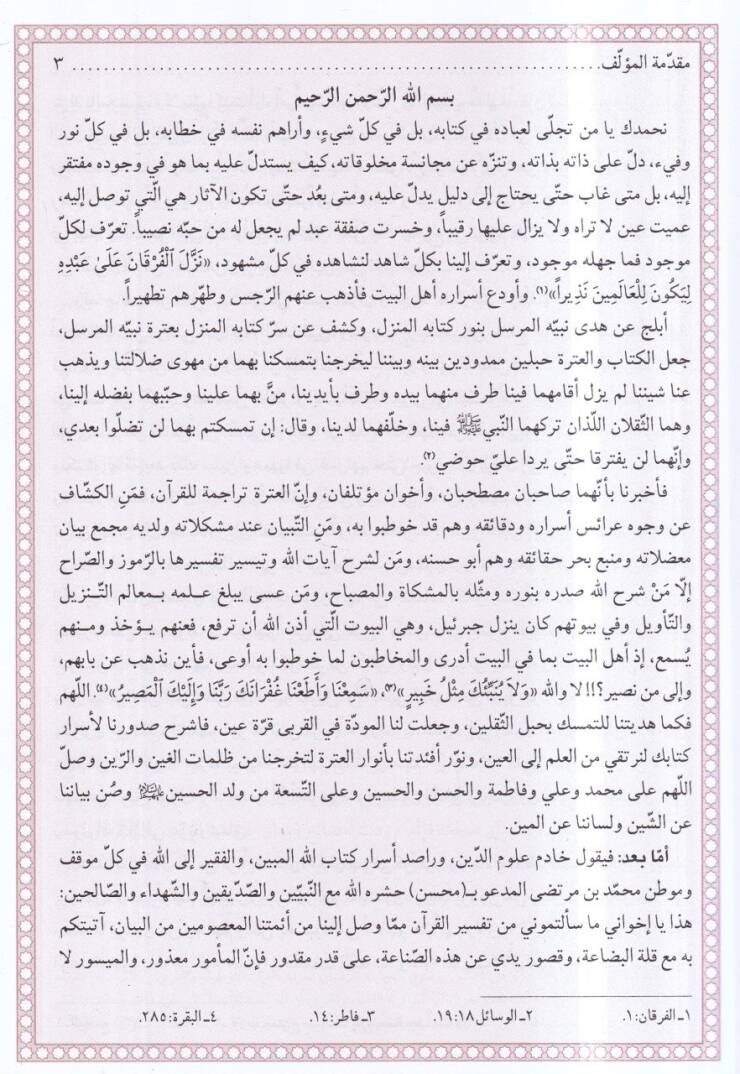 مقدّمة المؤلّف ........................................................ ٣
بسم الله الرّحمن الرّحيم
نحمدك يا من تجلّى لعباده في كتابه، بل في كلّ شيءٍ، وأراهم نفسه في خطابه، بل في كلّ نور
وفيء، دلّ على ذاته بذاته، وتنزّه عن مجانسة مخلوقاته، كيف يستدلّ عليه بما هو في وجوده مفتقر
إليه، بل متى غاب حتّى يحتاج إلى دليل يدلّ عليه، ومتى بعُد حتّى تكون الآثار هي الّتي توصل إليه،
عميت عين لا تراه ولا يزال عليها رقيباً، وخسرت صفقة عبد لم يجعل له من حبّه نصيباً. تعرّف لكلّ
موجود فما جهله موجود، وتعرّف إلينا بكلّ شاهد لنشاهده في كلّ مشهود، «نَزَّلَ ٱلْفُرْقَانَ عَلَىٰ عَبْدِهِ
لِيَكُونَ لِلْعَالَمِينَ نَذِيراً»(١). وأودع أسراره أهل البيت فأذهب عنهم الرّجس وطهّرهم تطهيراً.
أبلج عن هدى نبيّه المرسل بنور كتابه المنزل، وكشف عن سرّ كتابه المنزل بعترة نبيّه المرسل،
جعل الكتاب والعترة حبلين ممدودين بينه وبيننا ليخرجنا بتمسكنا بهما من مهوى ضلالتنا ويذهب
عنا شيننا لم يزل أقامهما فينا طرف منهما بيده وطرف بأيدينا، منَّ بهما علينا وحبّبهما بفضله إلينا،
وهما الثّقلان اللّذان تركهما النّبي ﷺ فينا، وخلّفهما لدينا، وقال: إن تمسكتم بهما لن تضلّوا بعدي،
وإنّهما لن يفترقا حتّى يردا عليّ حوضي(٢)
فأخبرنا بأنّهما صاحبان مصطحبان، وأخوان مؤتلفان، وإنّ العترة تراجمة للقرآن، فمَنِ الكشّاف
عن وجوه عرائس أسراره ودقائقه وهم قد خوطبوا به، ومَنِ التّبيان عند مشكلاته ولديه مجمع بيان
معضلاته ومنبع بحر حقائقه وهم أبو حسنه، ومَن لشرح آيات الله وتيسير تفسيرها بالرّموز والصّراح
إلّا مَنْ شرح الله صدره بنوره ومثّله بالمشكاة والمصباح، ومَن عسى يبلغ علمه بمعالم التّنزيل
والتّأويل وفي بيوتهم كان ينزل جبرئيل، وهي البيوت الّتي أذن الله أن ترفع، فعنهم يؤخذ ومنهم
يُسمع، إذ أهل البيت بما في البيت أدرى والمخاطبون لما خوطبوا به أوعى، فأين نذهب عن بابهم،
وإلى من نصير؟!! لا والله «وَلاَ يُنَبِّئُكَ مِثْلُ خَبِيرٍ»(٣)، «سَمِعْنَا وَأَطَعْنَا غُفْرَانَكَ رَبَّنَا وَإِلَيْكَ ٱلْمَصِيرُ»(٤). اللهم
فكما هديتنا للتمسك بحبل الثّقلين، وجعلت لنا المودّة في القربى قرّة عين، فاشرح صدورنا لأسرار
كتابك لنرتقي من العلم إلى العين، ونوّر أفئدتنا بأنوار العترة لتخرجنا من ظلمات الغين والرّين وصلّ
اللهم على محمد وعلي وفاطمة والحسن والحسين وعلى التّسعة من ولد الحسين وصُن بياننا
عن الشّين ولساننا عن المين.
أمّا بعد: فيقول خادم علوم الدّين، وراصد أسرار كتاب الله المبين، والفقير إلى الله في كلّ موقف
وموطن محمّد بن مرتضى المدعو بـ(محسن) حشره الله مع النّبيّين والصّدّيقين والشّهداء والصّالحين:
هذا يا إخواني ما سألتموني من تفسير القرآن ممّا وصل إلينا من أئمتنا المعصومين من البيان، آتيتكم
به مع قلة البضاعة، وقصور يدي عن هذه الصّناعة، على قدر مقدور فإنّ المأمور معذور، والميسور لا
١ـ الفرقان: ١. ٢ـ الوسائل ١٨: ١٩. ٣ـ فاطر: ١٤. ٤ـ البقرة: ٢٨٥.